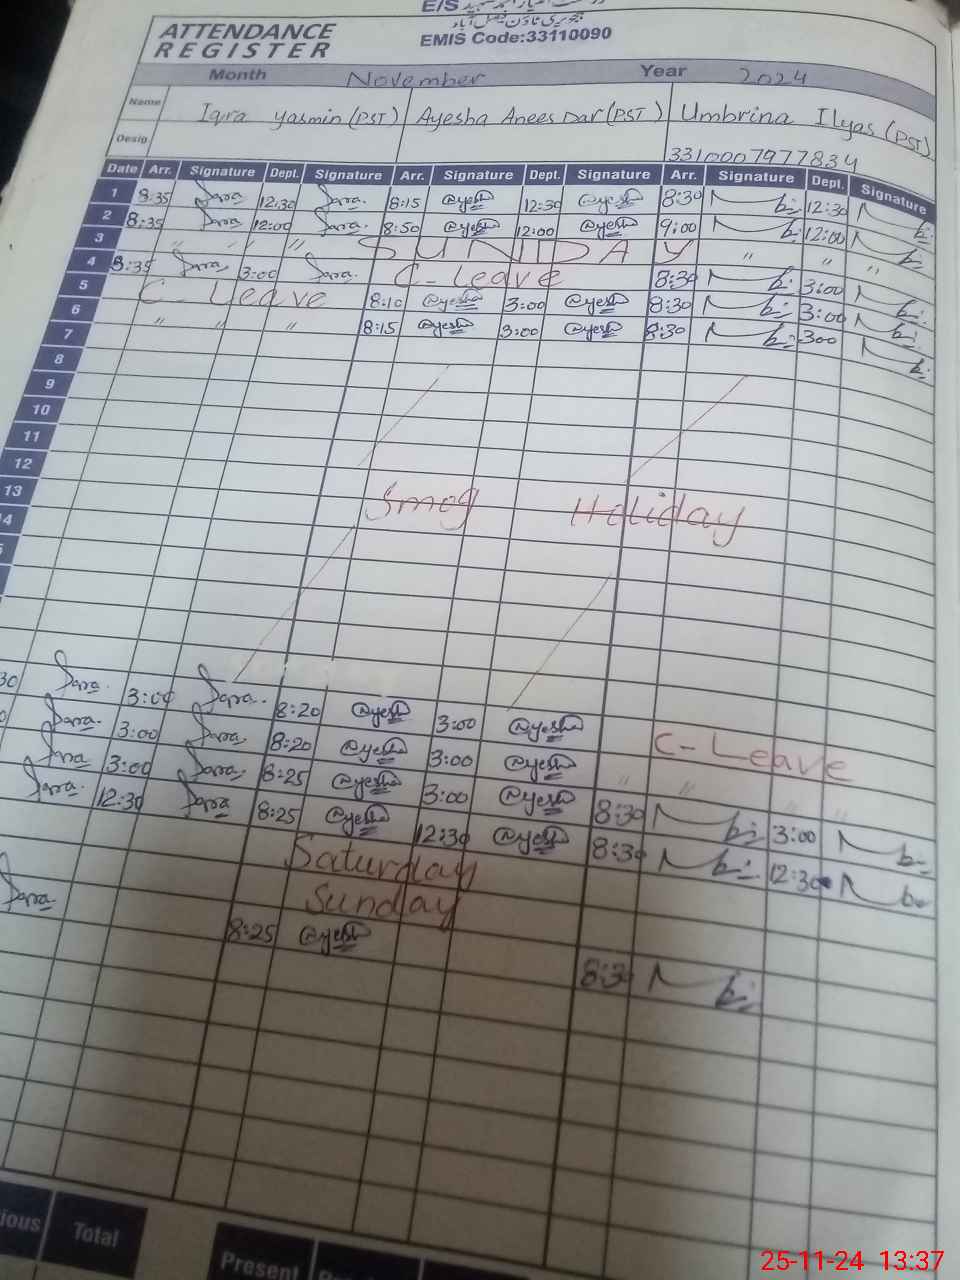 E/S
ATTENDANCE
REGISTER
EMIS Code:33110090
Month November Year 2024
Name Iqra yasmin (PST) Ayesha Anees Dar (PST) Umbrina Ilyas (PST)
Desig 3310007977834
Date Arr. Signature Dept. Signature Arr. Signature Dept. Signature Arr. Signature Dept. Signature
1 8:35 Iqra 12:30 Iqra. 8:15 @yesh 12:30 @yesh 8:30 12:30
2 8:35 Iqra 12:00 Iqra. 8:50 @yesh 12:00 @yesh 9:00 12:00
3 " " " SUNDAY " " "
4 8:35 Iqra 3:00 Iqra. C-Leave 8:30 3:00
5 C-Leave 8:10 @yesha 3:00 @yesh 8:30 3:00
6 " " " 8:15 @yesh 3:00 @yesh 8:30 300
7
8
9
10
11
12
13 Smog Holiday
4
5
30 Iqra. 3:00 Iqra. 8:20 @yesh 3:00 @yesha C-Leave
0 Iqra. 3:00 Iqra. 8:20 @yesha 3:00 @yesha " " " "
Iqra 3:00 Iqra. 8:25 @yesha 3:00 @yesha 8:30 3:00
Iqra. 12:30 Iqra 8:25 @yesha 12:30 @yesha 8:30 12:30
Saturday
Sunday
Iqra 8:25 @yesh 8:30
ious Total Present
25-11-24 13:37